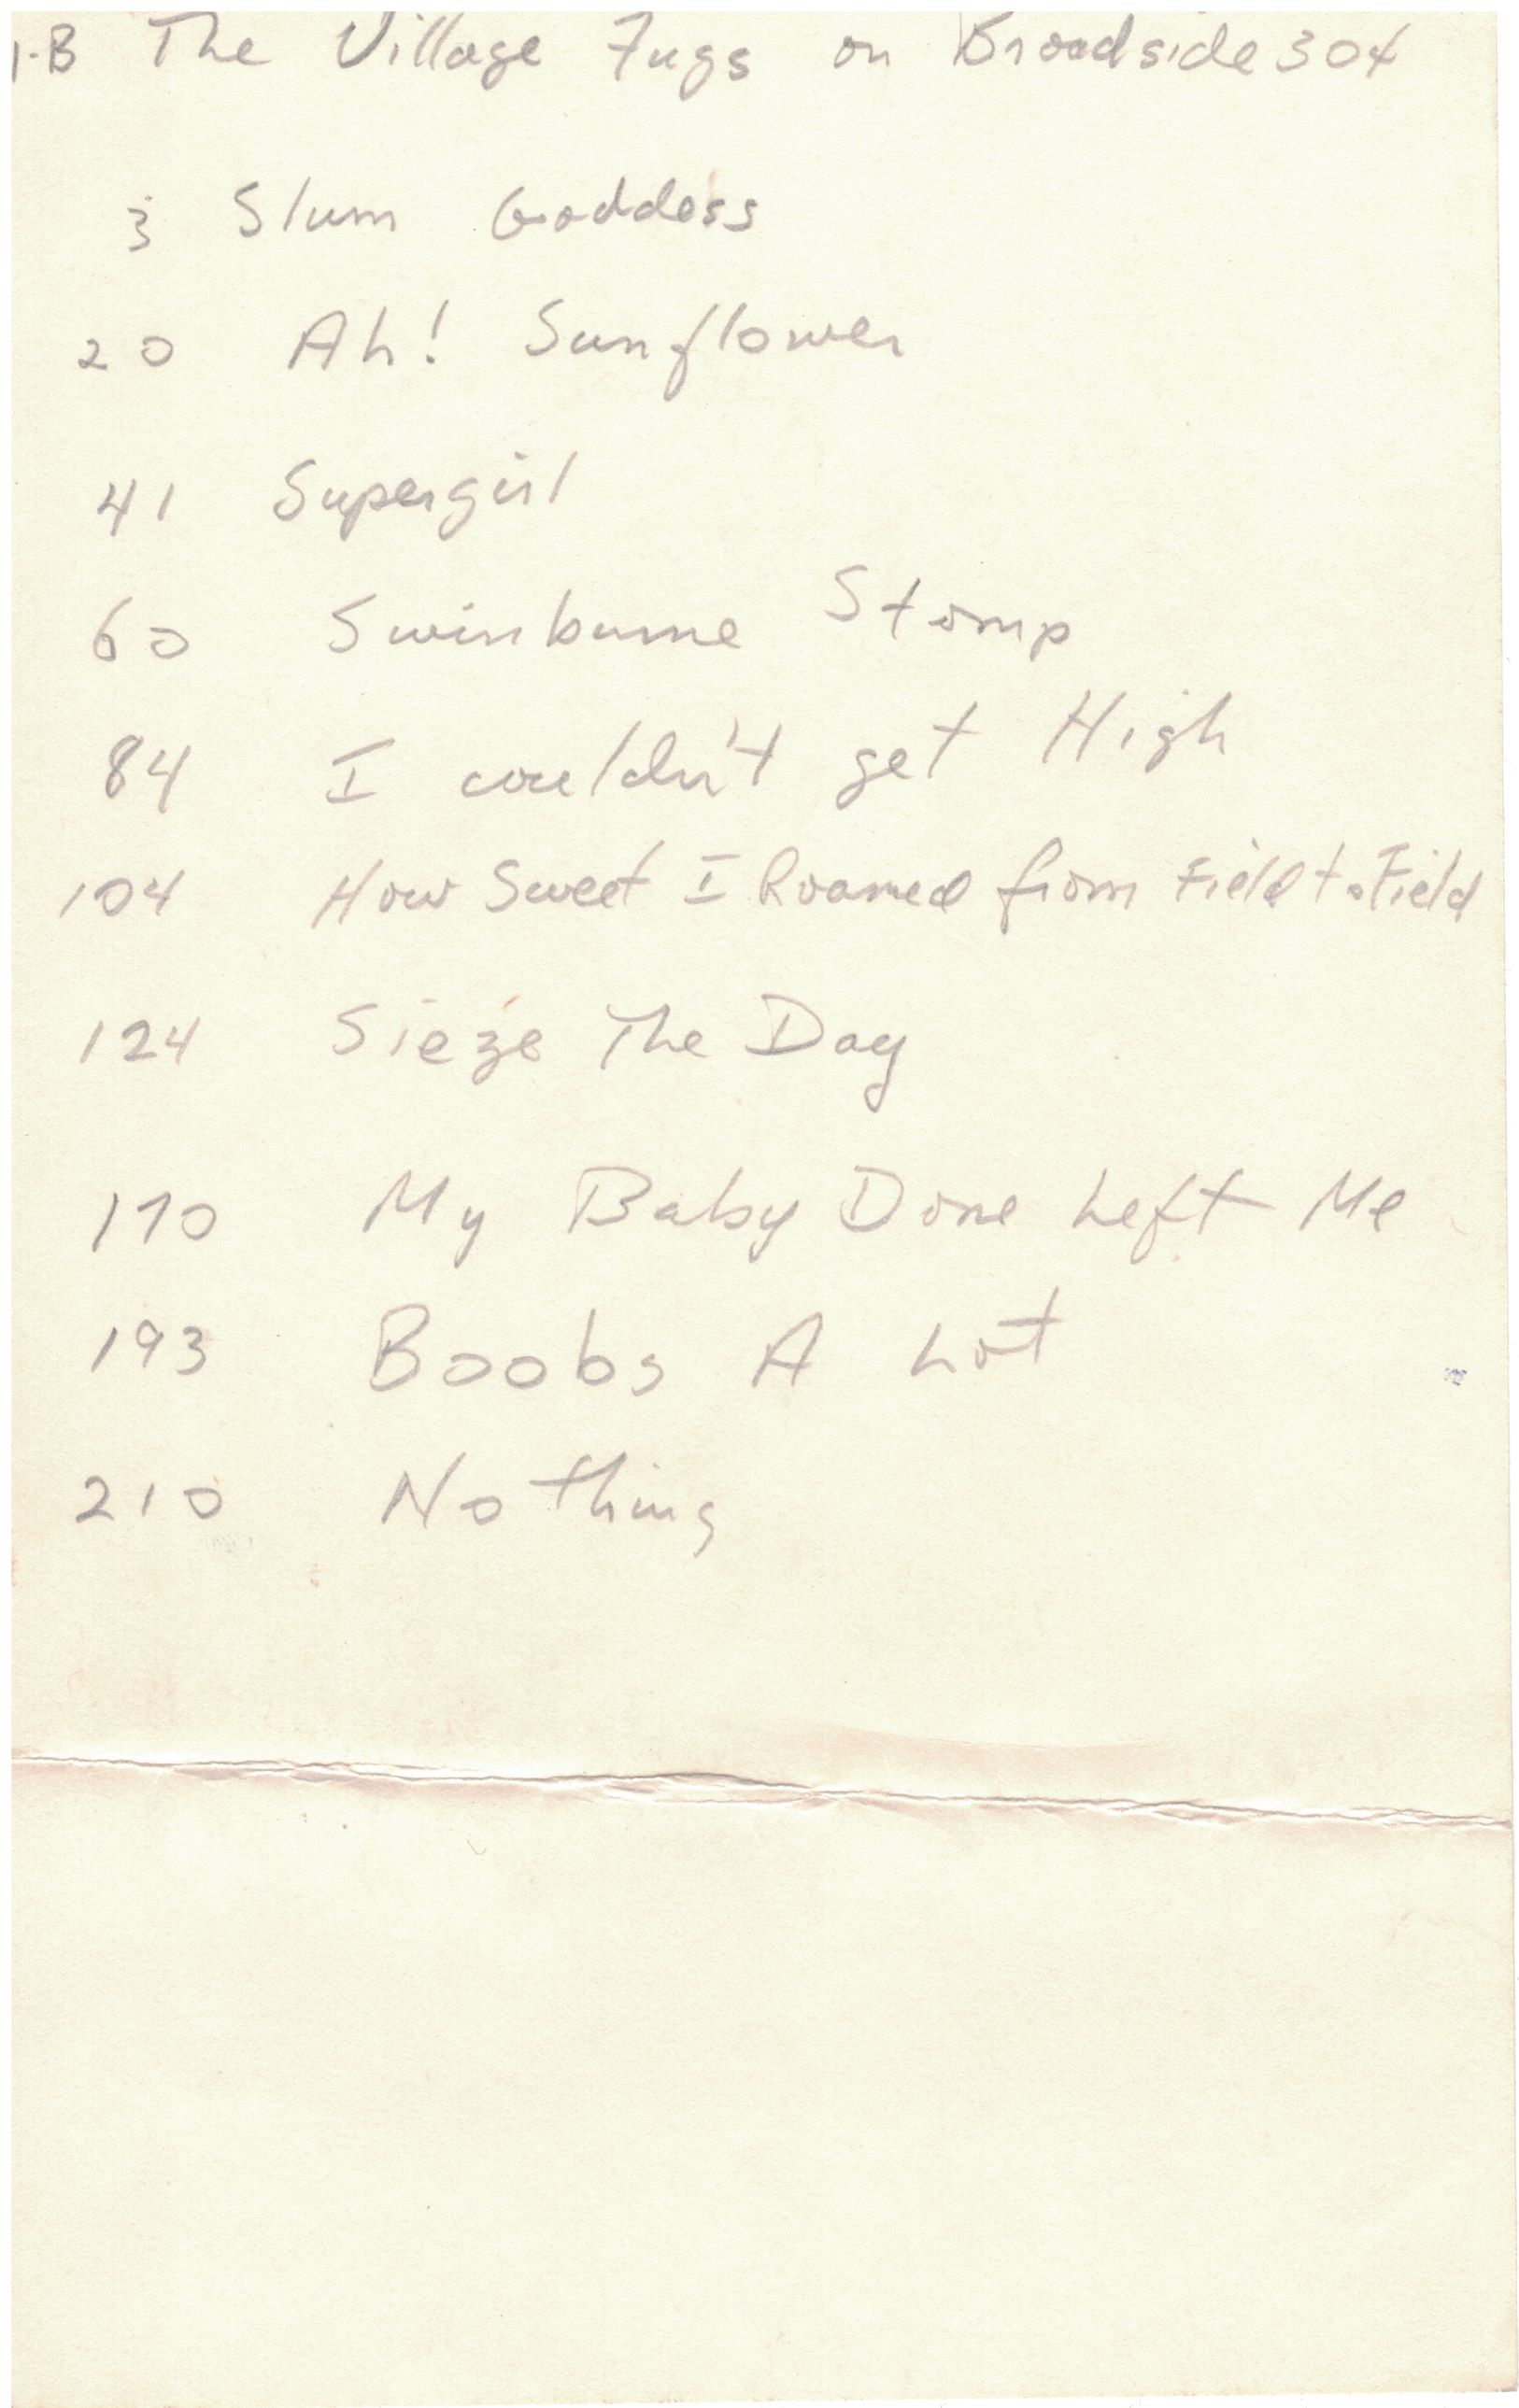 1-B The Village Fugs on Broadside 304
3 Slum Goddess
20 Ah! Sunflower
41 Supergirl
60 Swinburne Stomp
84 I couldn't get High
104 How Sweet I Roamed from Field to Field
124 Sieze The Day
170 My Baby Done Left Me
193 Boobs A Lot
210 Nothing